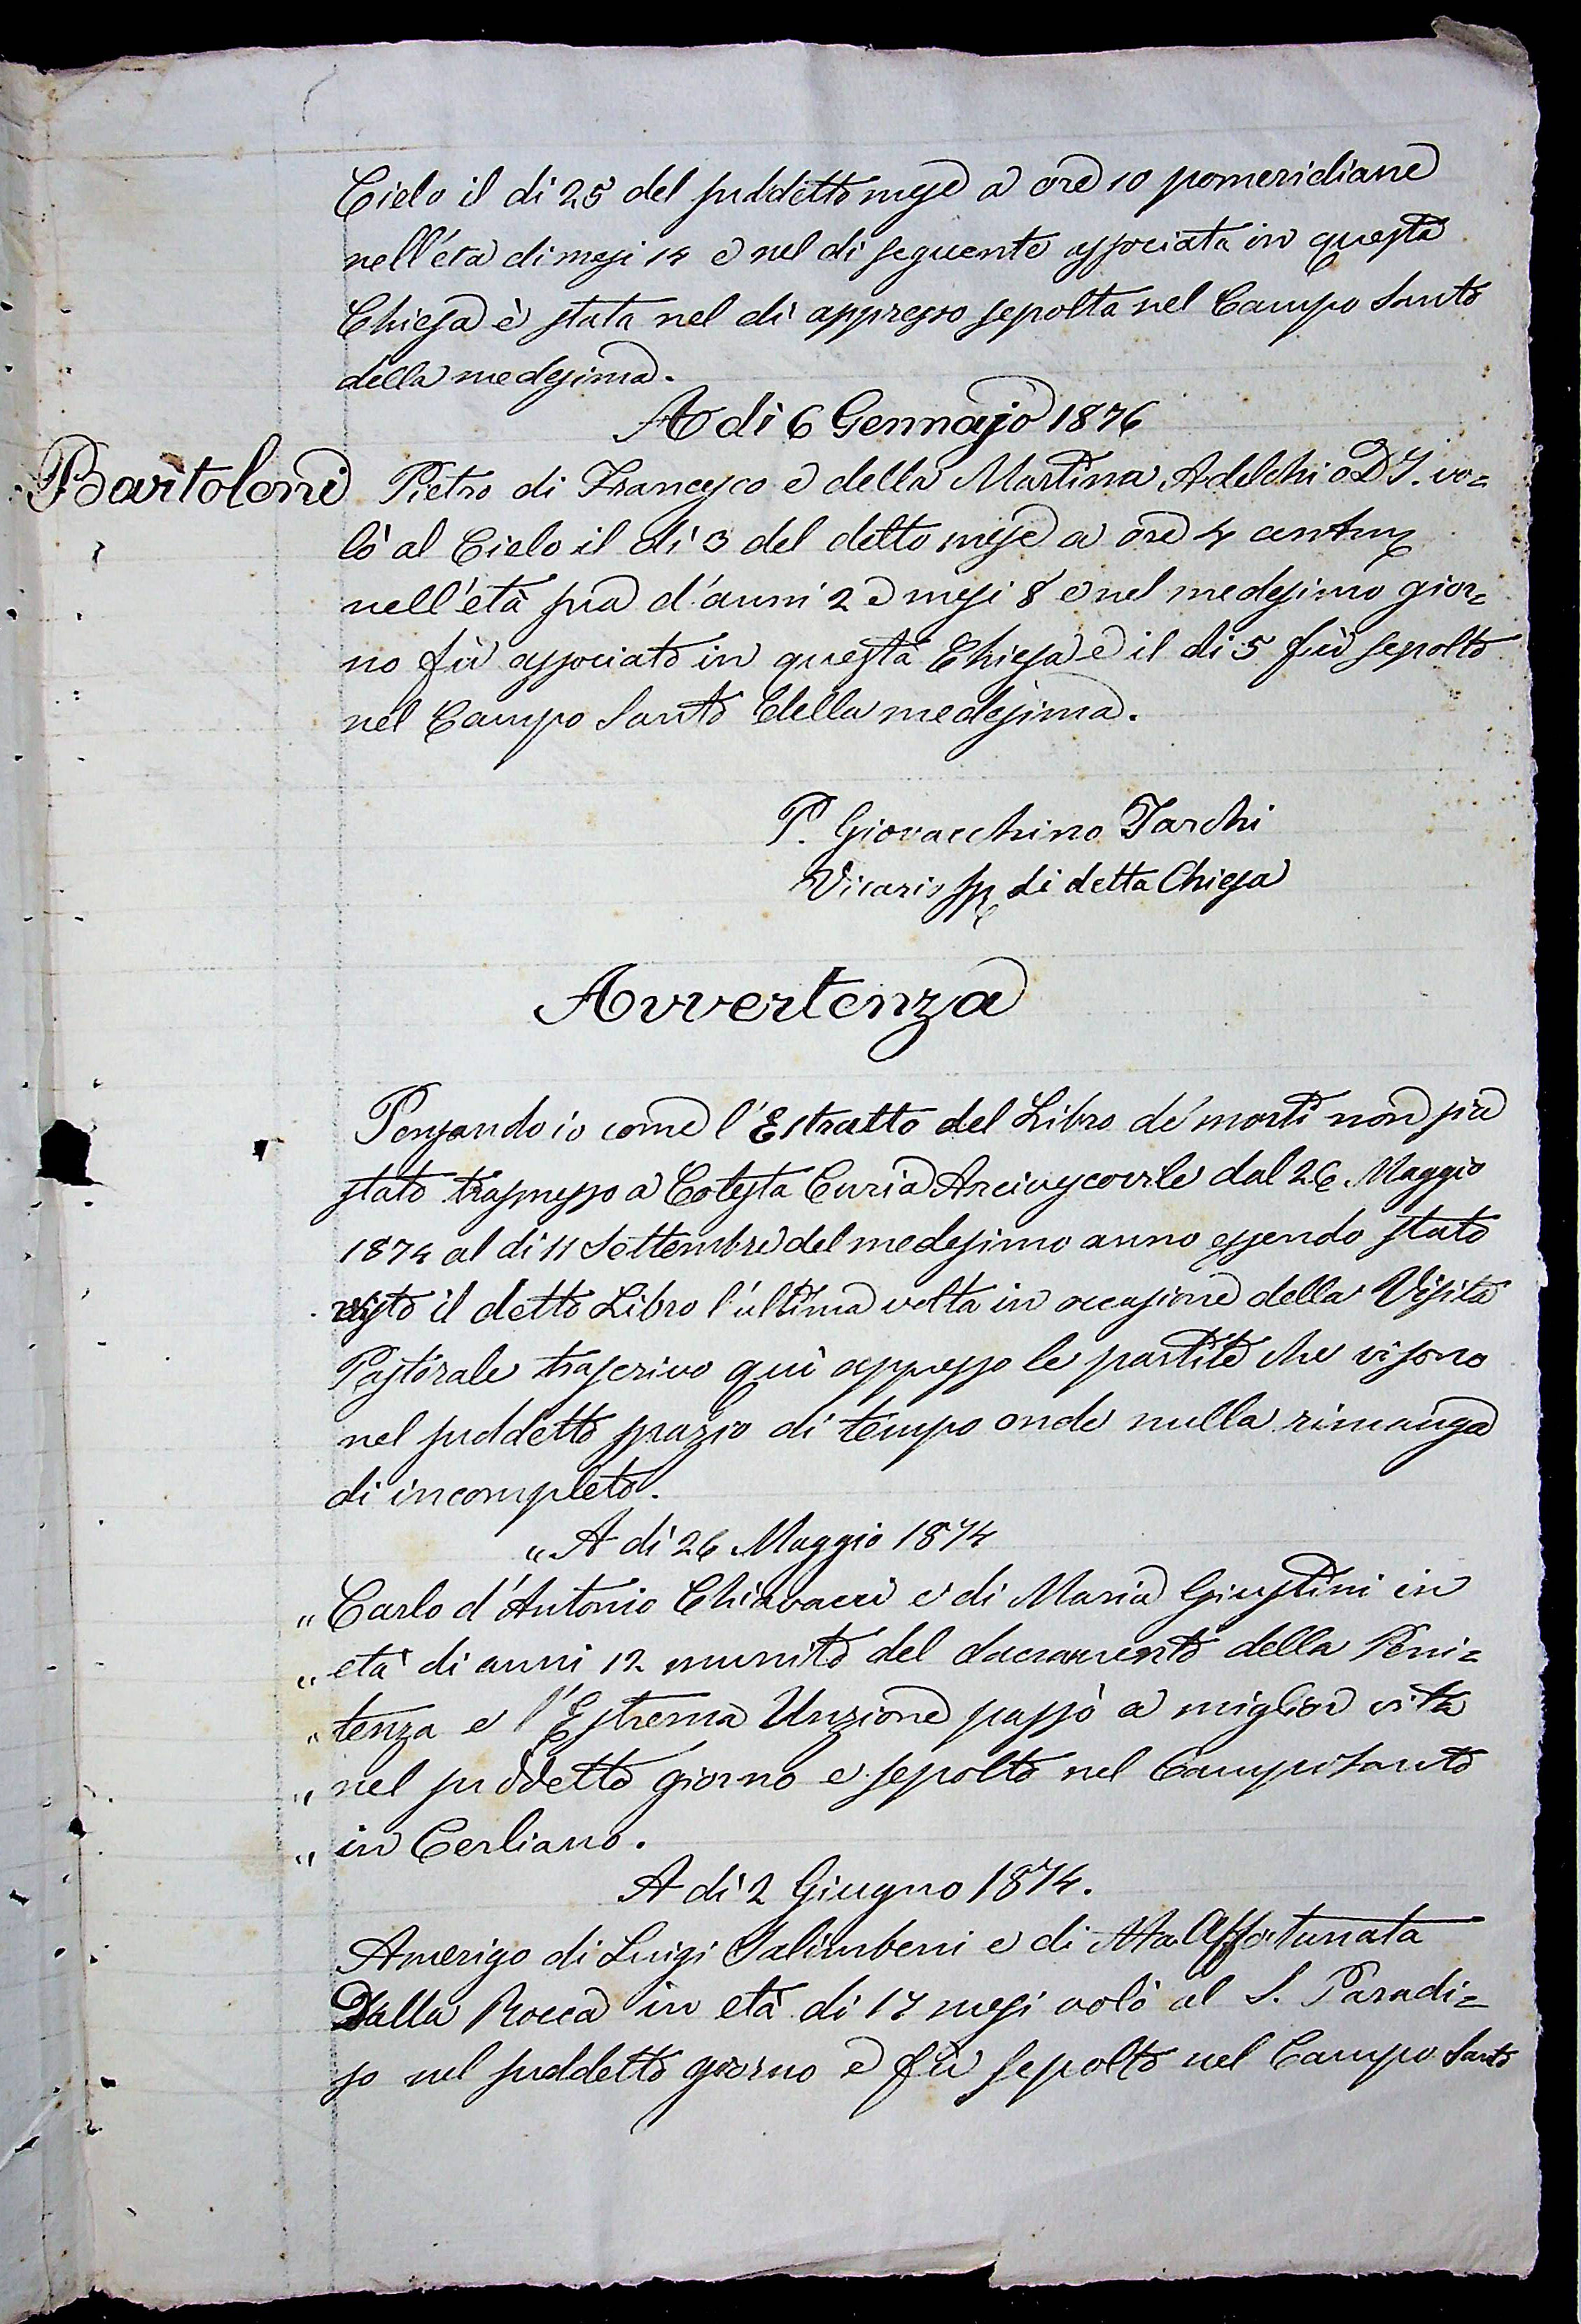 Cielo il di 25 del suddetto mese a ore 10 pomeridiane
nell'età di mesi 14 e nel di seguente associata in questa
Chiesa è stata nel di appresso sepolta nel Campo Santo
della medesima.
A di 6 Gennajo 1876
Bartoloni Pietro di Francesco e della Martina Adelchi vo=
lò al Cielo il di 3 del detto mese a ore 4
nell'età sua d'anni 2 e mesi 8 e nel medesimo gior=
no fù associato in questa Chiesa e il di 5 fù sepolto
nel Campo Santo della medesima.
P. Giovacchino Tarchi
Vicario Sp. di detta Chiesa
Avvertenza
Pensando io come l'Estratto del Libro de' morti non sia
stato trasmesso a Cotesta Curia Arcivescovle dal 26 Maggio
1874 al di 11 Settembre del medesimo anno essendo stato
visto il detto Libro l'ultima volta in occasione della Visita
Pastorale trascrivo quì appresso le partite che vi sono
nel suddetto spazio di tempo onde nulla rimanga
di incompleto.
"A di 26 Maggio 1874
"Carlo d'Antonio Chiavacci e di Maria Giustini in
"età di anni 12 munito del Sacramento della Peni=
"tenza e l'Estrema Unzione passò a miglior vita
"nel suddetto giorno e sepolto nel Campo Santo
"in Cerliano.
A di 2 Giugno 1874.
Amerigo di Luigi Salimbeni e di Ma Affortunata
Dalla Rocca in età di 17 mesi volò al S. Paradi=
so nel suddetto giorno e fù sepolto nel Campo Santo